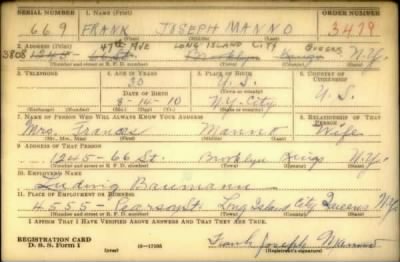 SERIAL NUMBER 1. NAME (Print) ORDER NUMBER
669 FRANK JOSEPH MANNO 3479
(First) (Middle) (Last)
47th AVE LONG ISLAND CITY QUEENS
2. ADDRESS (Print)
3808 1245 - 66 St. Brooklyn Kings N.Y.
(Number and street or R. F. D. number) (Town) (County) (State)
3. TELEPHONE 4. AGE IN YEARS 5. PLACE OF BIRTH 6. COUNTRY OF CITIZENSHIP
30 U. S.
DATE OF BIRTH
8-14-10 N.Y. City U. S.
(Exchange) (Number) (Mo.) (Day) (Yr.) (Town or county) (State or country)
7. NAME OF PERSON WHO WILL ALWAYS KNOW YOUR ADDRESS 8. RELATIONSHIP OF THAT PERSON
Mrs. Frances Manno Wife
(Mr., Mrs., Miss) (First) (Middle) (Last)
9. ADDRESS OF THAT PERSON
1245-66 St. Brooklyn Kings N.Y.
(Number and street or R. F. D. number) (Town) (County) (State)
10. EMPLOYER'S NAME
Baumann
11. PLACE OF EMPLOYMENT OR BUSINESS
4555- Pearson St. Long Island City Queens N.Y.
(Number and street or R. F. D. number) (Town) (County) (State)
I AFFIRM THAT I HAVE VERIFIED ABOVE ANSWERS AND THAT THEY ARE TRUE.
REGISTRATION CARD
D. S. S. Form 1 16-17105 Frank Joseph Manno
(Registrant's signature)